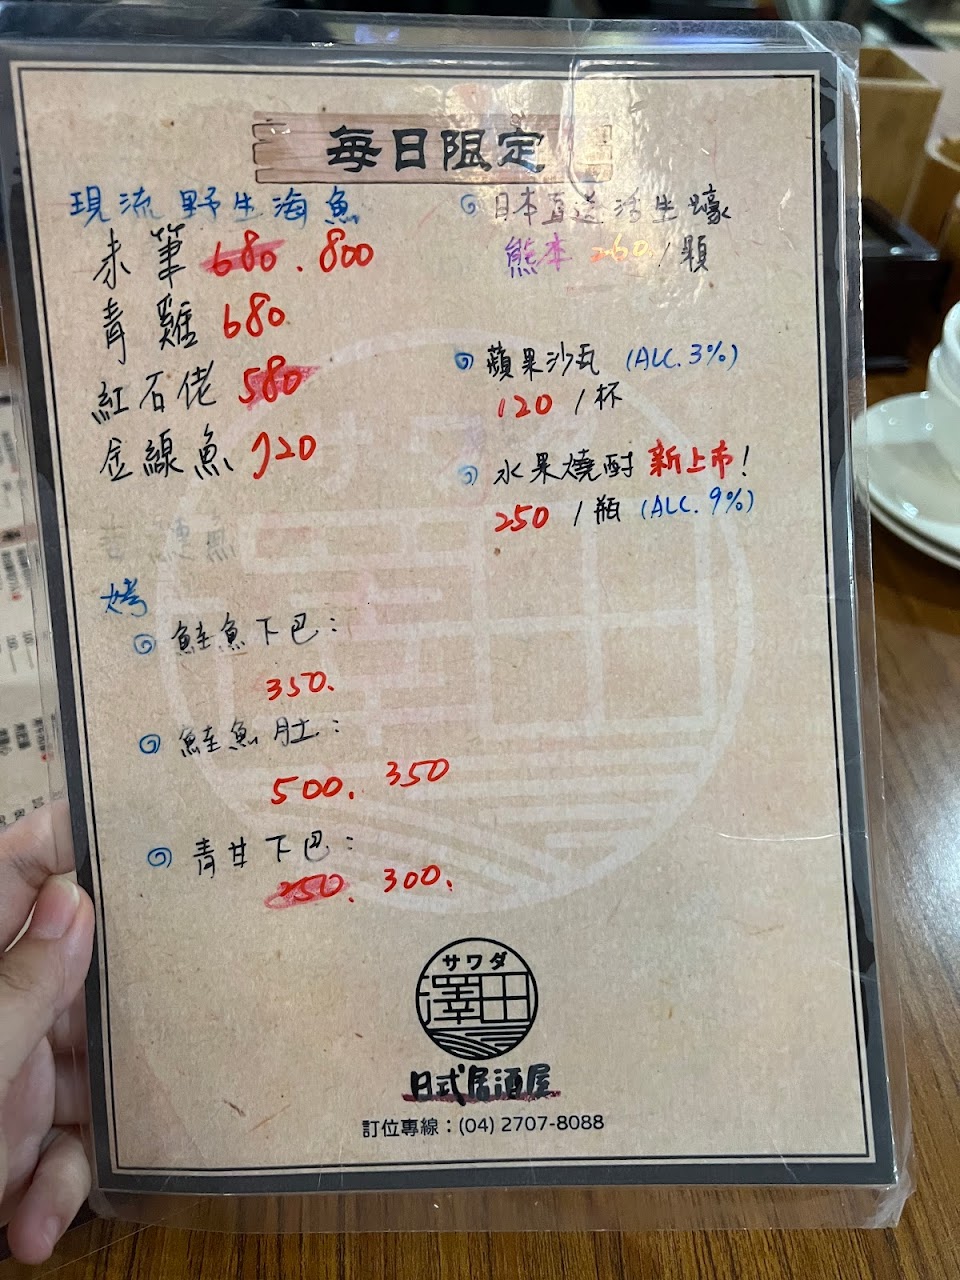 每日限定
現流野生海魚
未筆 680. 800
青雞 680
紅石佬 580
金線魚 720
烤
鮭魚下巴:
350.
鮭魚肚:
500. 350
青甘下巴:
250. 300.
日本直送活生蠔
熊本 260/顆
蘋果沙瓦 (ALC. 3%)
120/杯
水果燒酎 新上市!
250/瓶 (ALC. 9%)
サワダ
澤田
日式居酒屋
訂位專線：(04) 2707-8088